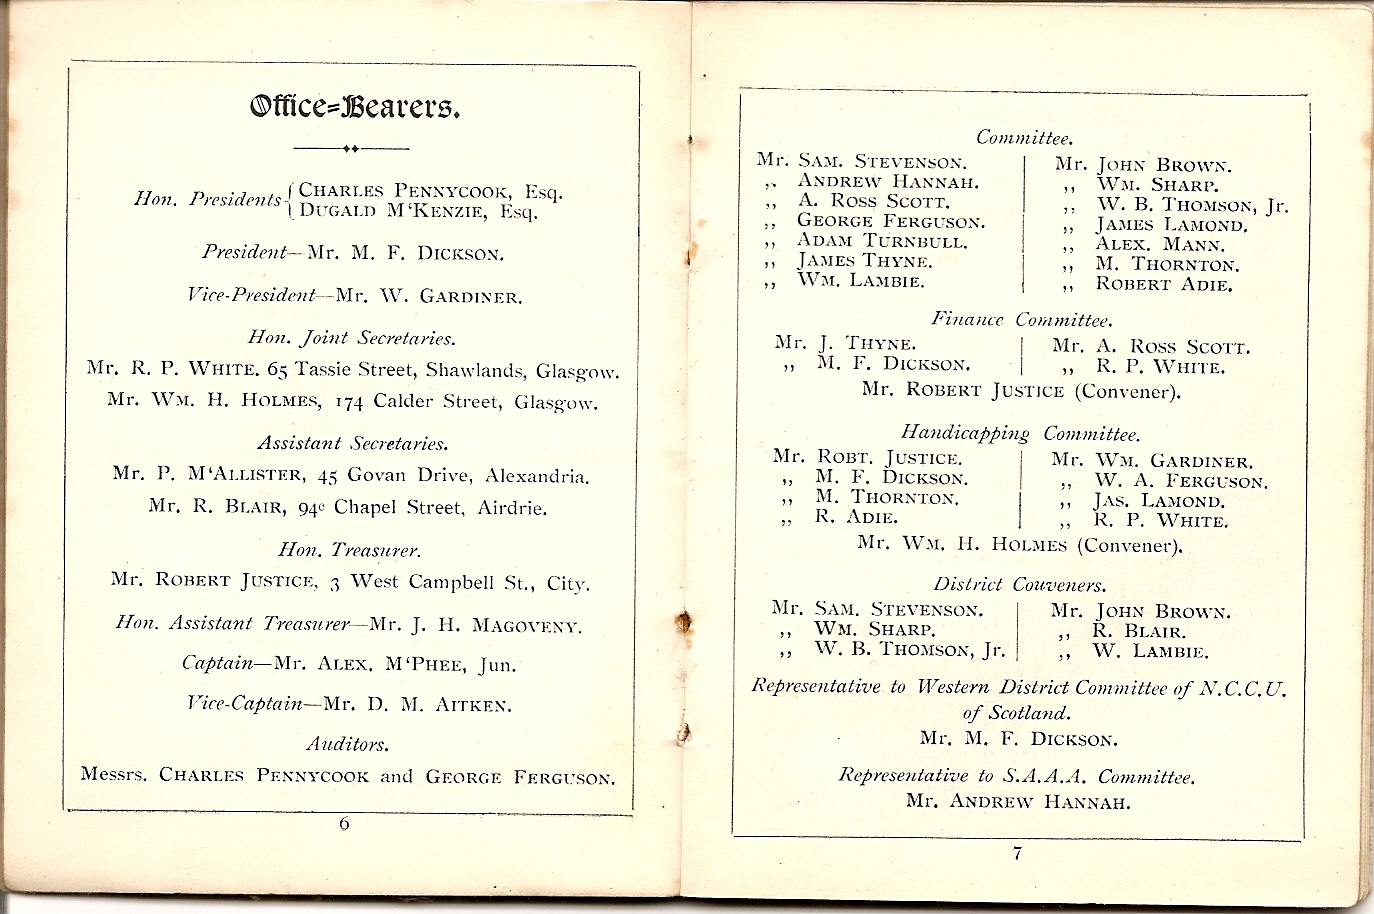 Office=Bearers.
Hon. Presidents { CHARLES PENNYCOOK, Esq.
DUGALD M'KENZIE, Esq.
President—Mr. M. F. DICKSON.
Vice-President—Mr. W. GARDINER.
Hon. Joint Secretaries.
Mr. R. P. WHITE. 65 Tassie Street, Shawlands, Glasgow.
Mr. WM. H. HOLMES, 174 Calder Street, Glasgow.
Assistant Secretaries.
Mr. P. M'ALLISTER, 45 Govan Drive, Alexandria.
Mr. R. BLAIR, 94c Chapel Street, Airdrie.
Hon. Treasurer.
Mr. ROBERT JUSTICE, 3 West Campbell St., City.
Hon. Assistant Treasurer—Mr. J. H. MAGOVENY.
Captain—Mr. ALEX. M'PHEE, Jun.
Vice-Captain—Mr. D. M. AITKEN.
Auditors.
Messrs. CHARLES PENNYCOOK and GEORGE FERGUSON.
6
Committee.
Mr. SAM. STEVENSON.
,, ANDREW HANNAH.
,, A. ROSS SCOTT.
,, GEORGE FERGUSON.
,, ADAM TURNBULL.
,, JAMES THYNE.
,, WM. LAMBIE.
Mr. JOHN BROWN.
,, WM. SHARP.
,, W. B. THOMSON, Jr.
,, JAMES LAMOND.
,, ALEX. MANN.
,, M. THORNTON.
,, ROBERT ADIE.
Finance Committee.
Mr. J. THYNE.
,, M. F. DICKSON.
Mr. A. ROSS SCOTT.
,, R. P. WHITE.
Mr. ROBERT JUSTICE (Convener).
Handicapping Committee.
Mr. ROBT. JUSTICE.
,, M. F. DICKSON.
,, M. THORNTON.
,, R. ADIE.
Mr. WM. GARDINER.
,, W. A. FERGUSON.
,, JAS. LAMOND.
,, R. P. WHITE.
Mr. WM. H. HOLMES (Convener).
District Couveners.
Mr. SAM. STEVENSON.
,, WM. SHARP.
,, W. B. THOMSON, Jr.
Mr. JOHN BROWN.
,, R. BLAIR.
,, W. LAMBIE.
Representative to Western District Committee of N.C.C.U.
of Scotland.
Mr. M. F. DICKSON.
Representative to S.A.A.A. Committee.
Mr. ANDREW HANNAH.
7